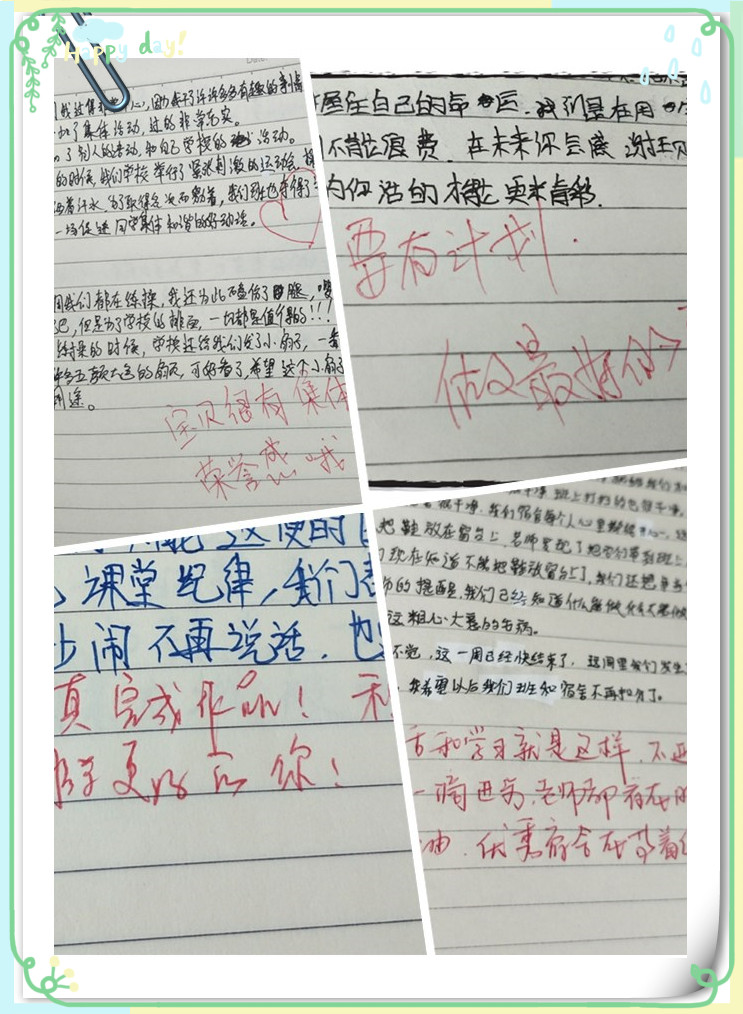 Happy day!
我过得非常
心,因为我干了许许多多有趣的事情
了集体活动,过的非常充实。
了别人的劳动,和自己学校的活动。
的时候,我们学校举行了紧张刺激的运动会,
着汗水,为了取得名次而努力着,我们班也夺得了
一场促进同学集体和谐的好活动。
周我们都在练操,我还为此不
吧,但是为了学校的
一切都是值得的!!!
结束的时候,学校还给我们发了小扇子,一看
五颜六色的扇面,可好看了,希望这个小扇子
用途。
宝贝很有集体
荣誉感哦
握住自己的命运,我们是在用
不能浪费,在未来你会感谢现
为你活的
更精彩.
要有计划.
做最好的个
这
课堂纪律,我们
少闹不再说话,也
真完成作品!
更好的你!
干净,我们宿舍每个人心里
把鞋放在窗台上,老师
现在知道不能把鞋放窗台了,我们还想
师的提醒,我们已经知道什么能做什么不能做
这粗心大意的毛病。
不觉,这一周已经快结束了,这周里我们发生
我希望以后我们班和宿舍不再扣分了。
和学习就是这样,不
老师都
油,优秀宿舍在等着